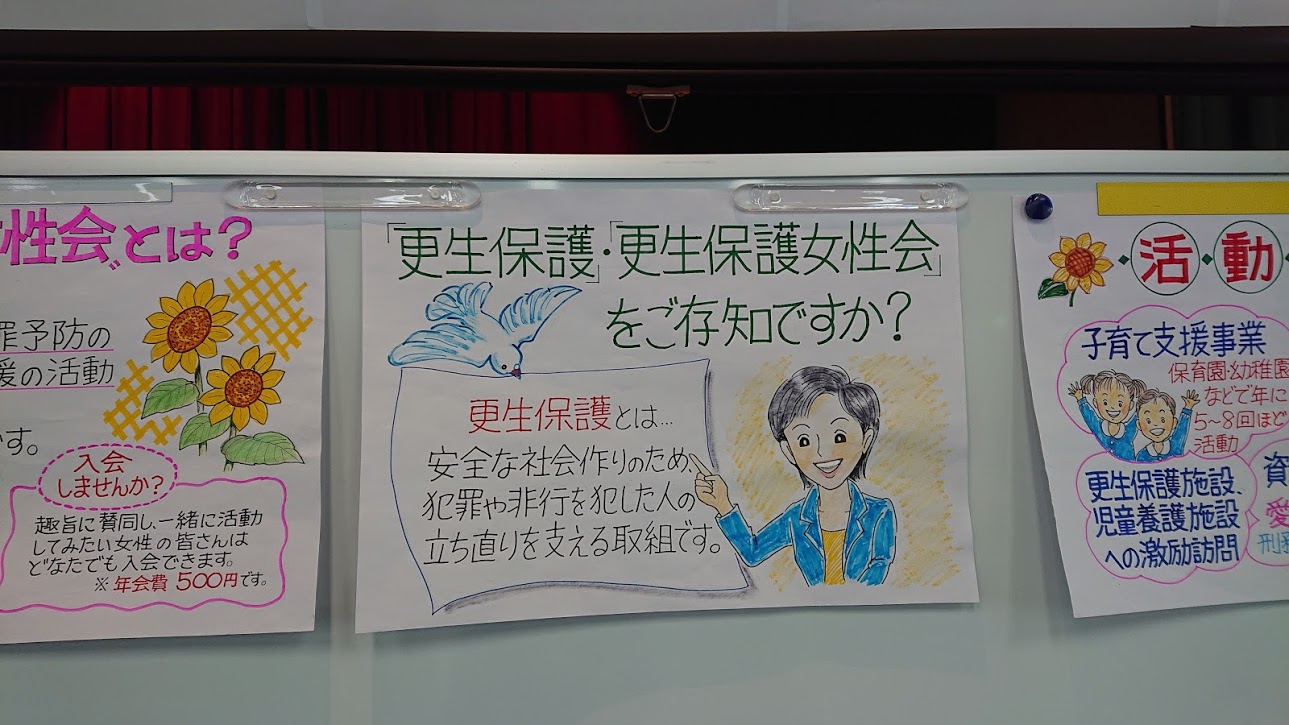 性会”とは?
罪予防の
援の活動
です。
入会
しませんか?
趣旨に賛同し、一緒に活動
してみたい女性の皆さんは
どなたでも入会できます。
※年会費 500円です。
「更生保護」・「更生保護女性会」
をご存知ですか?
更生保護とは…
安全な社会作りのため、
犯罪や非行を犯した人の
立ち直りを支える取組です。
・活・動・
子育て支援事業
保育園・幼稚園
などで年に
5~8回ほど
活動
更生保護施設、
児童養護施設
への激励訪問
資
愛
刑務